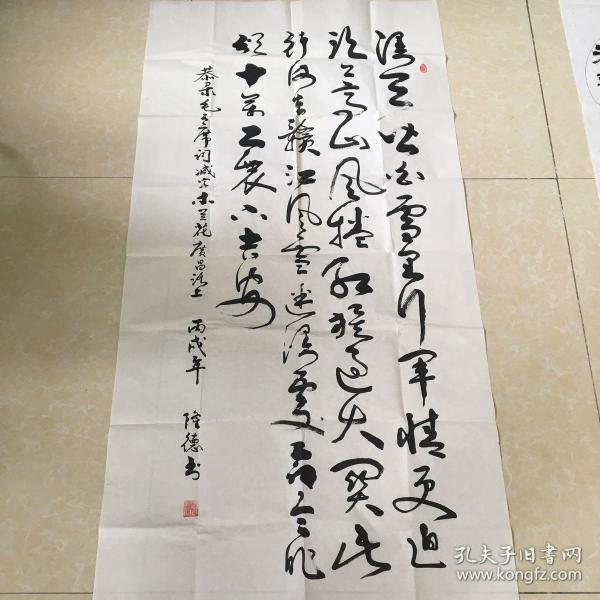 漫天皆白雪里行军情更迫
头上高山风捲红旗过大関此
行何去赣江风雪迷漫处命令昨
颁十万工农下吉安
恭录毛主席词减字木兰花广昌路上 丙戌年 隆德书
孔夫子旧书网
www.kongfz.com